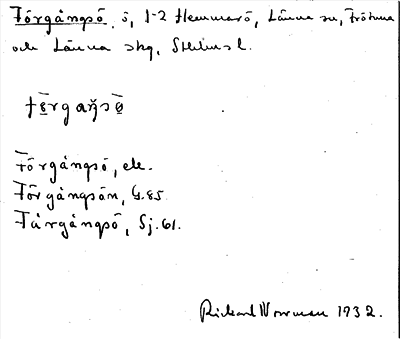 Förgångsö, ö, 1-2 Hemmarö, Länna sn, Frötuna
och Länna skg, Sthlms l.
Förgångsö, ek.
Förgångsön, G.85
Fårgångsö, Sj.61.
Rickard Norman 1932.